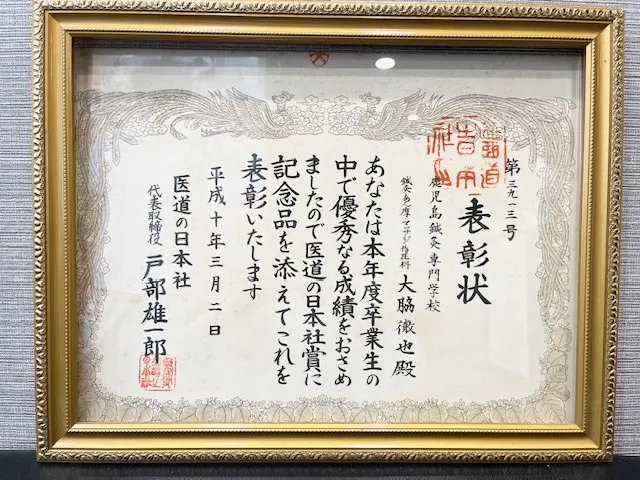 第三九一三号
表彰状
鹿児島鍼灸専門学校
大脇徹也殿
あなたは本年度卒業生の
中で優秀なる成績をおさめ
ましたので医道の日本社賞に
記念品を添えてこれを
表彰いたします
平成十年三月二日
医道の日本社
代表取締役 戸部雄一郎